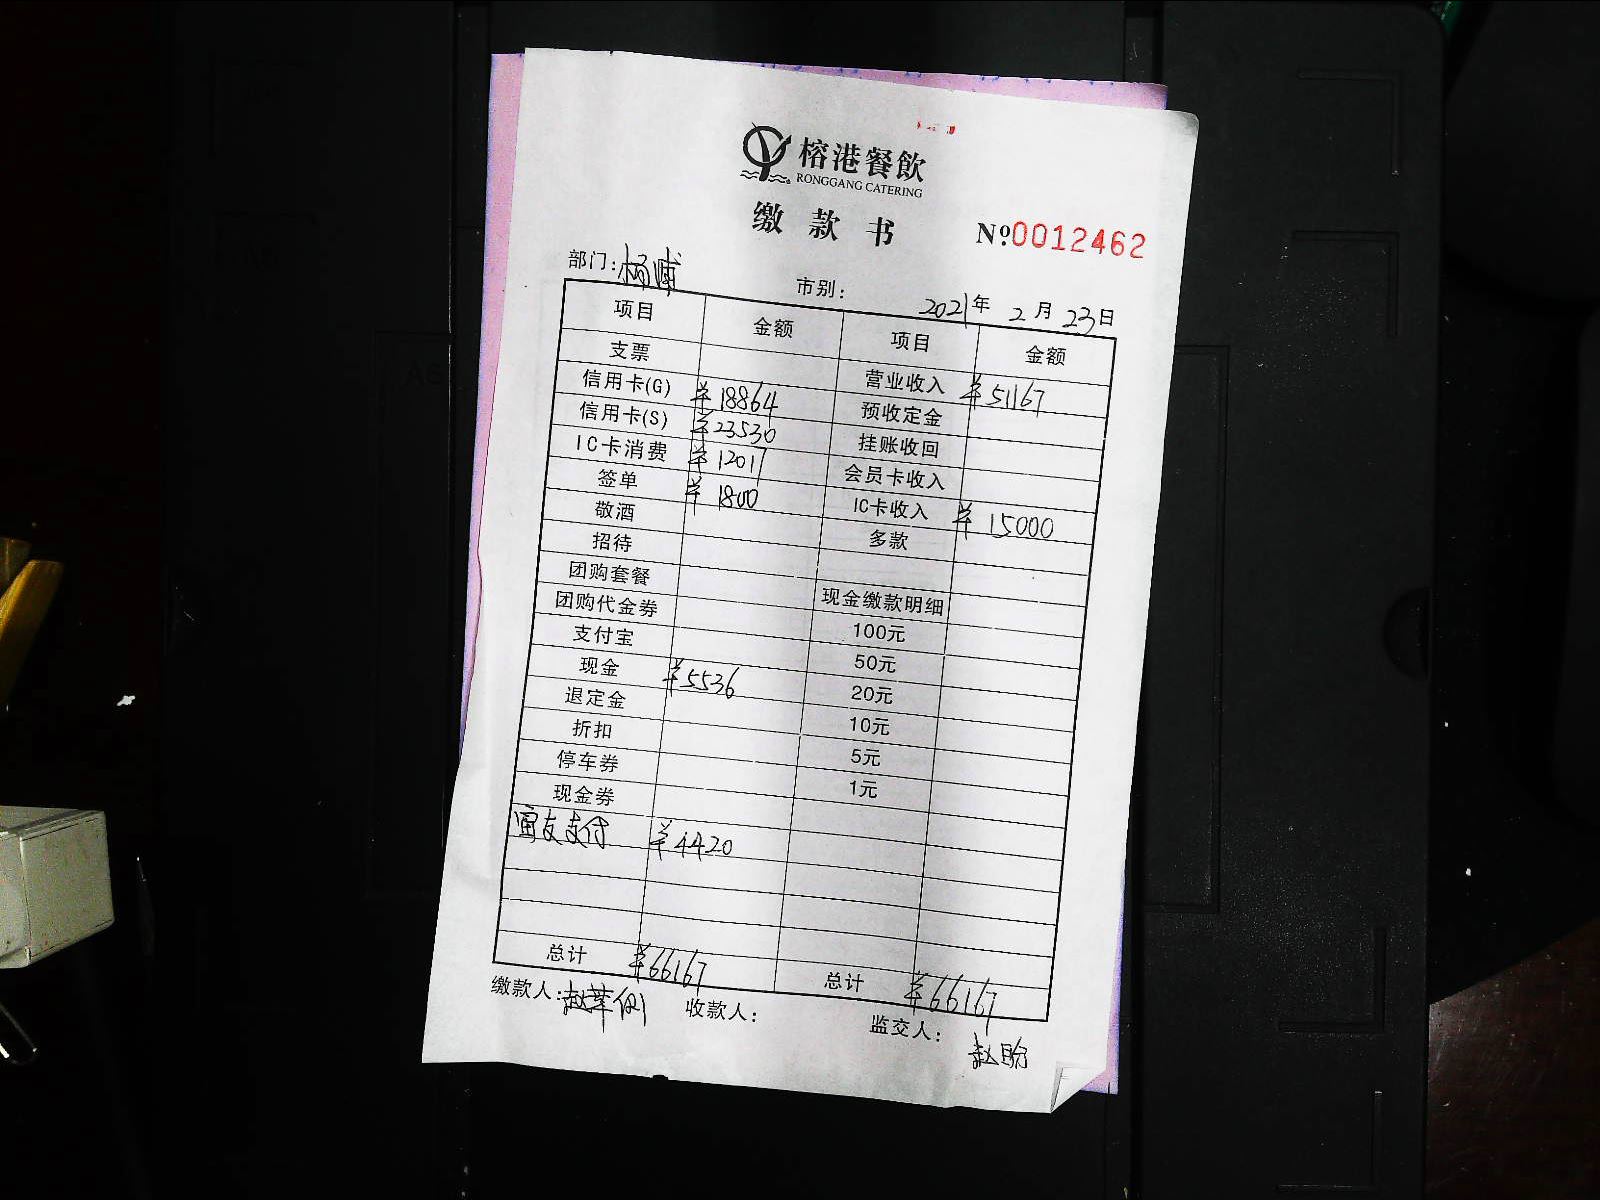 榕港餐飲
RONGGANG CATERING
缴款书 Nº0012462
部门: 市别: 2021年 2月 23日
项目 金额 项目 金额
支票 营业收入 ¥51167
信用卡(G) ¥18864 预收定金
信用卡(S) ¥23530 挂账收回
IC卡消费 ¥12017 会员卡收入
签单 ¥1800 IC卡收入 ¥15000
敬酒 多款
招待
团购套餐 现金缴款明细
团购代金券 100元
支付宝 50元
现金 ¥5536 20元
退定金 10元
折扣 5元
停车券 1元
现金券
富友支付 ¥4420
总计 ¥66167 总计 ¥66167
缴款人: 收款人: 监交人: 赵盼